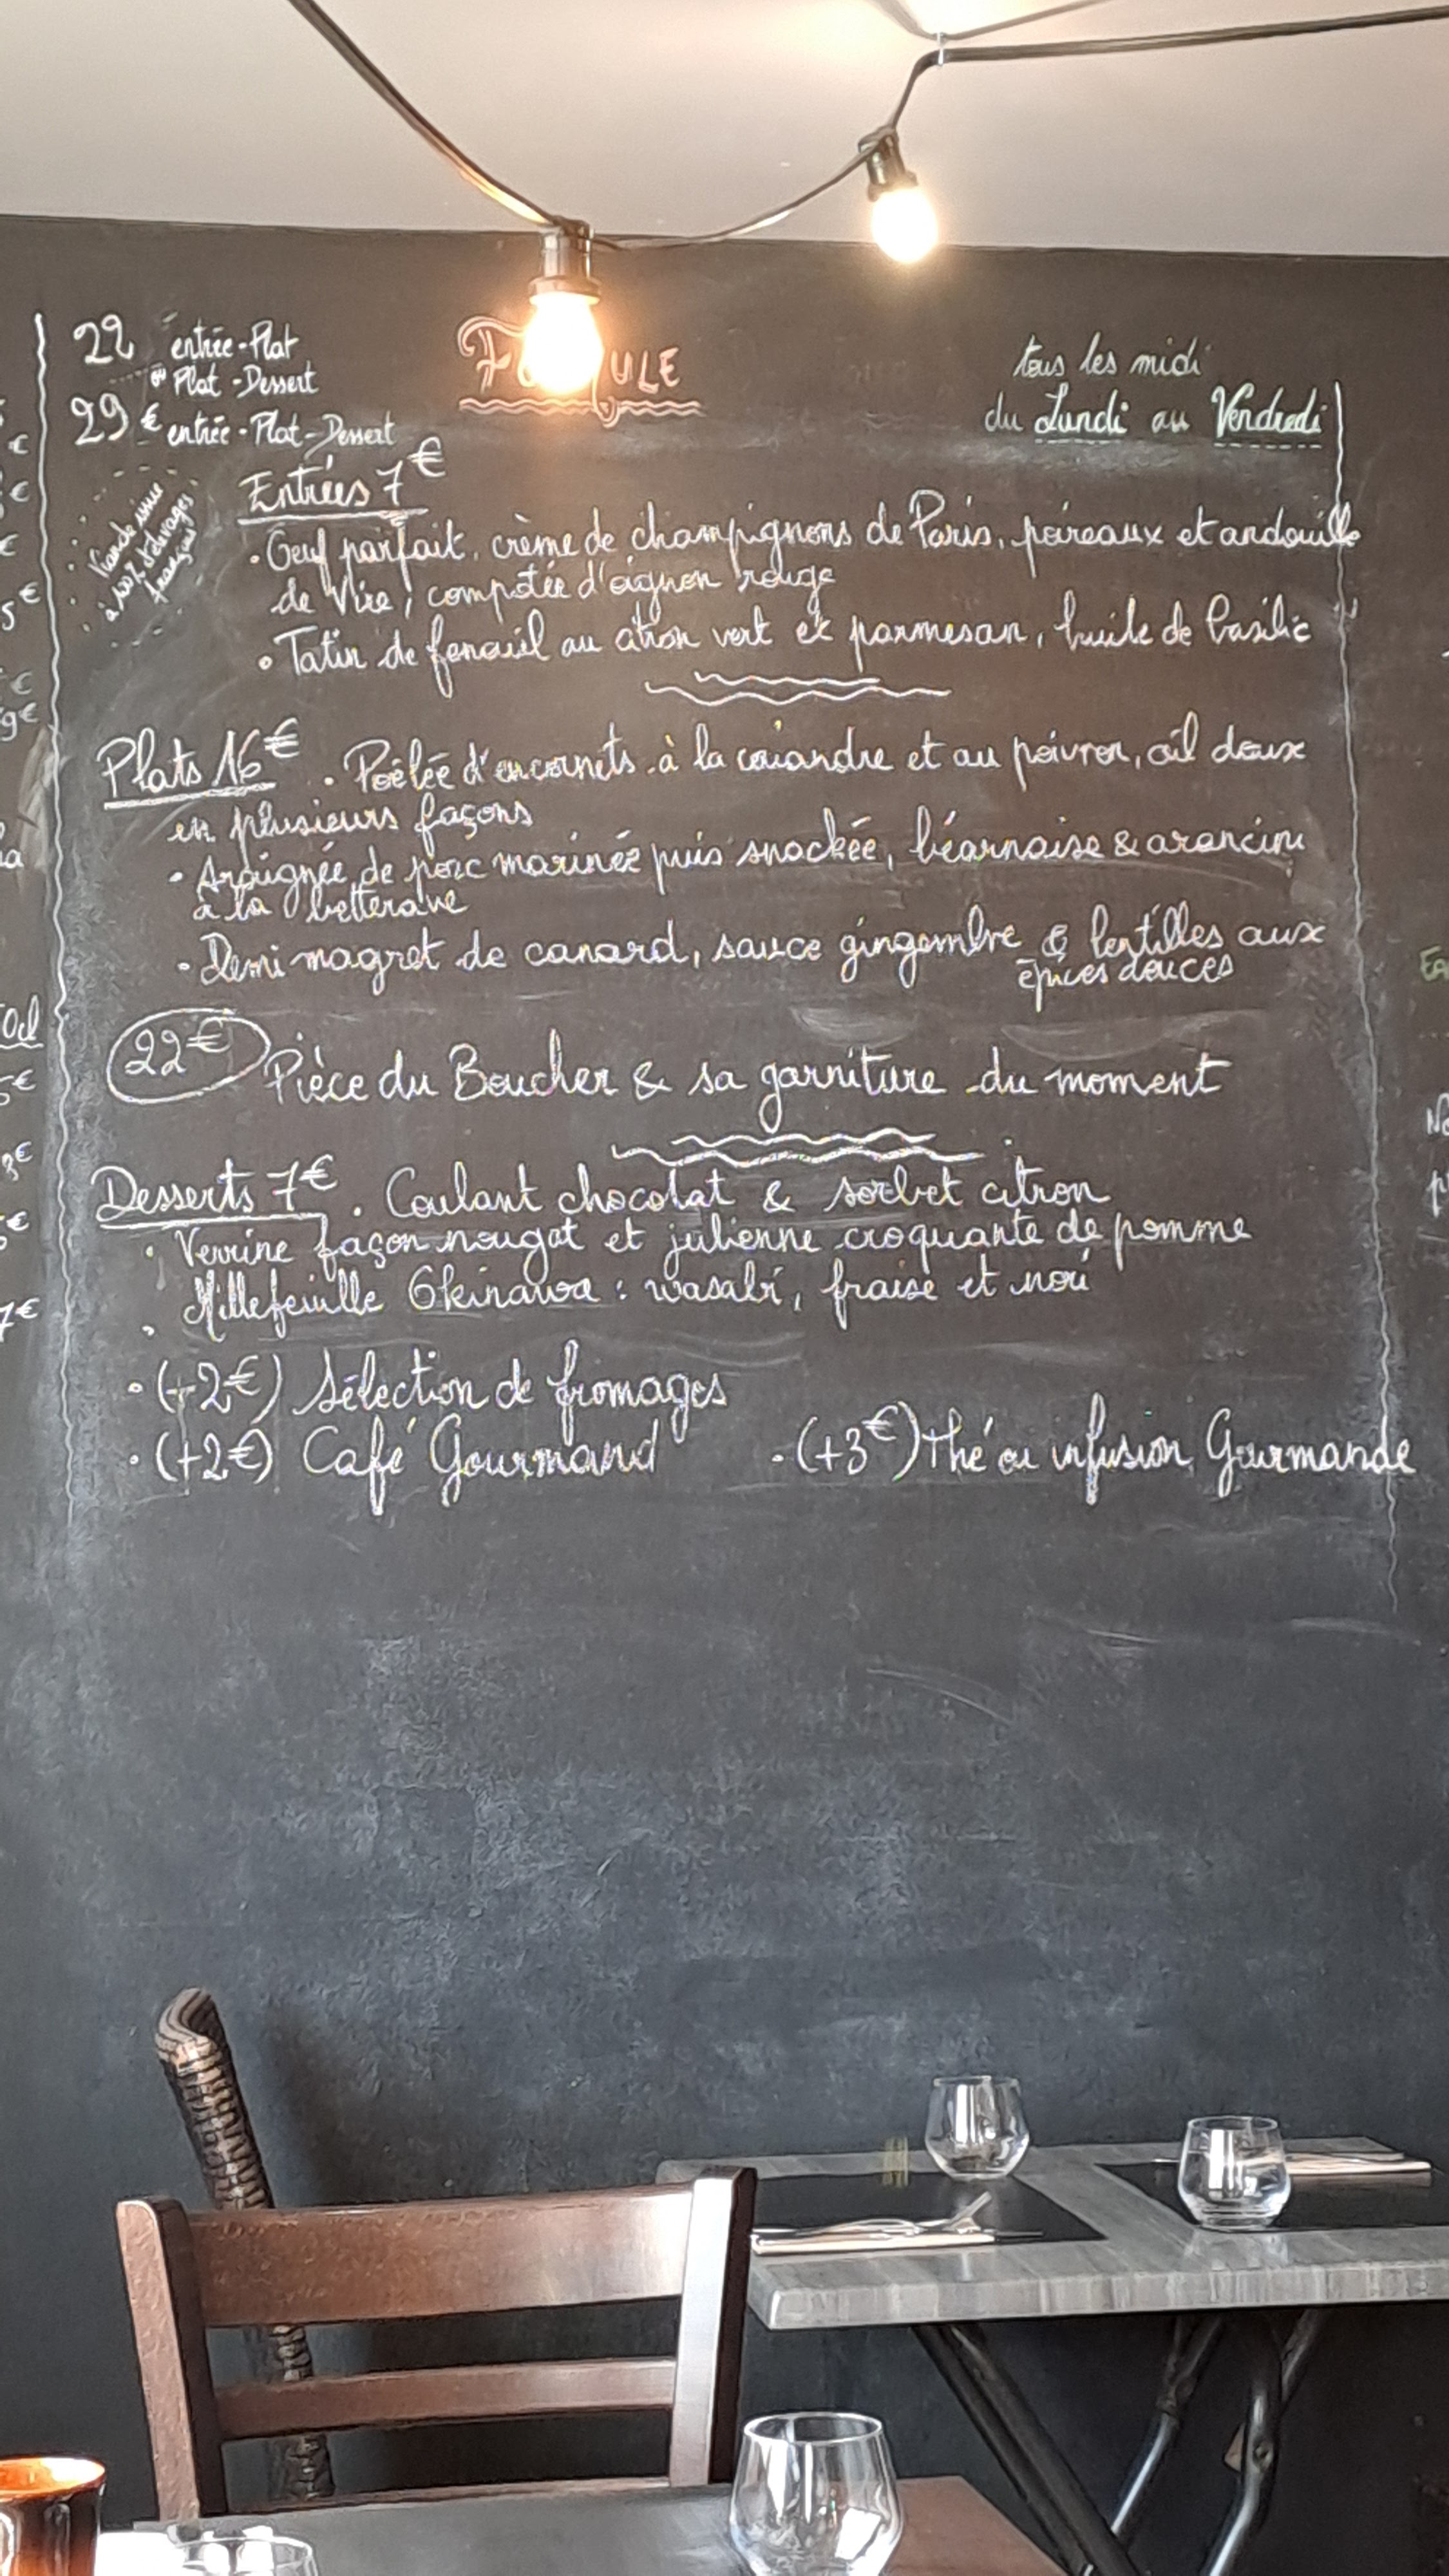 22 entrée-Plat
ou Plat-Dessert
29€ entrée-Plat-Dessert
tous les midi
du Lundi au Vendredi
Entrées 7€
Viande issue
à 100% d'élevages
français
• Oeuf parfait, crème de champignons de Paris, poireaux et andouille
de Vire, compotée d'oignon rouge
• Tatin de fenouil au citron vert et parmesan, huile de basilic
Plats 16€ • Poêlée d'encornets à la coriandre et au poivron, ail doux
en plusieurs façons
• Araignée de porc marinée puis snackée, béarnaise & arancini
à la betterave
• Demi magret de canard, sauce gingembre & lentilles aux
épices douces
22€ Pièce du Boucher & sa garniture du moment
Desserts 7€ • Coulant chocolat & sorbet citron
• Verrine façon nougat et julienne croquante de pomme
• Millefeuille Okinawa : wasabi, fraise et nori
• (+2€) Sélection de fromages
• (+2€) Café Gourmand • (+3€) thé ou infusion Gourmande